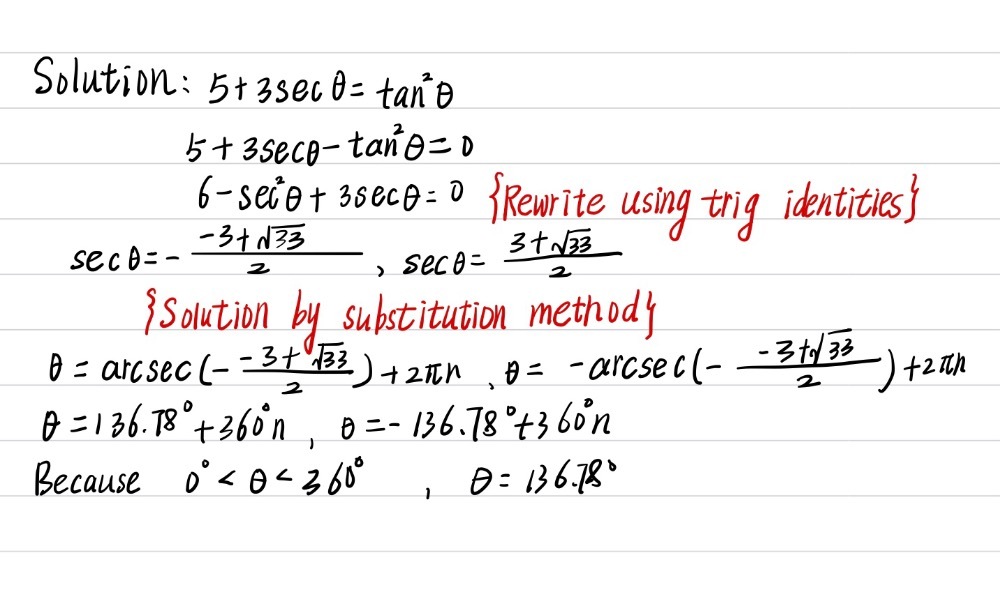 Solution: 5+3secθ=tan²θ
5+3secθ-tan²θ=0
6-sec²θ+3secθ=0 {Rewrite using trig identities}
secθ=-\frac{-3+\sqrt{33}}{2}, secθ=\frac{3+\sqrt{33}}{2}
{Solution by substitution method}
θ=arcsec(-\frac{-3+\sqrt{33}}{2})+2πn, θ=-arcsec(-\frac{-3+\sqrt{33}}{2})+2πn
θ=136.78°+360°n, θ=-136.78°+360°n
Because 0°<θ<360°, θ=136.78°